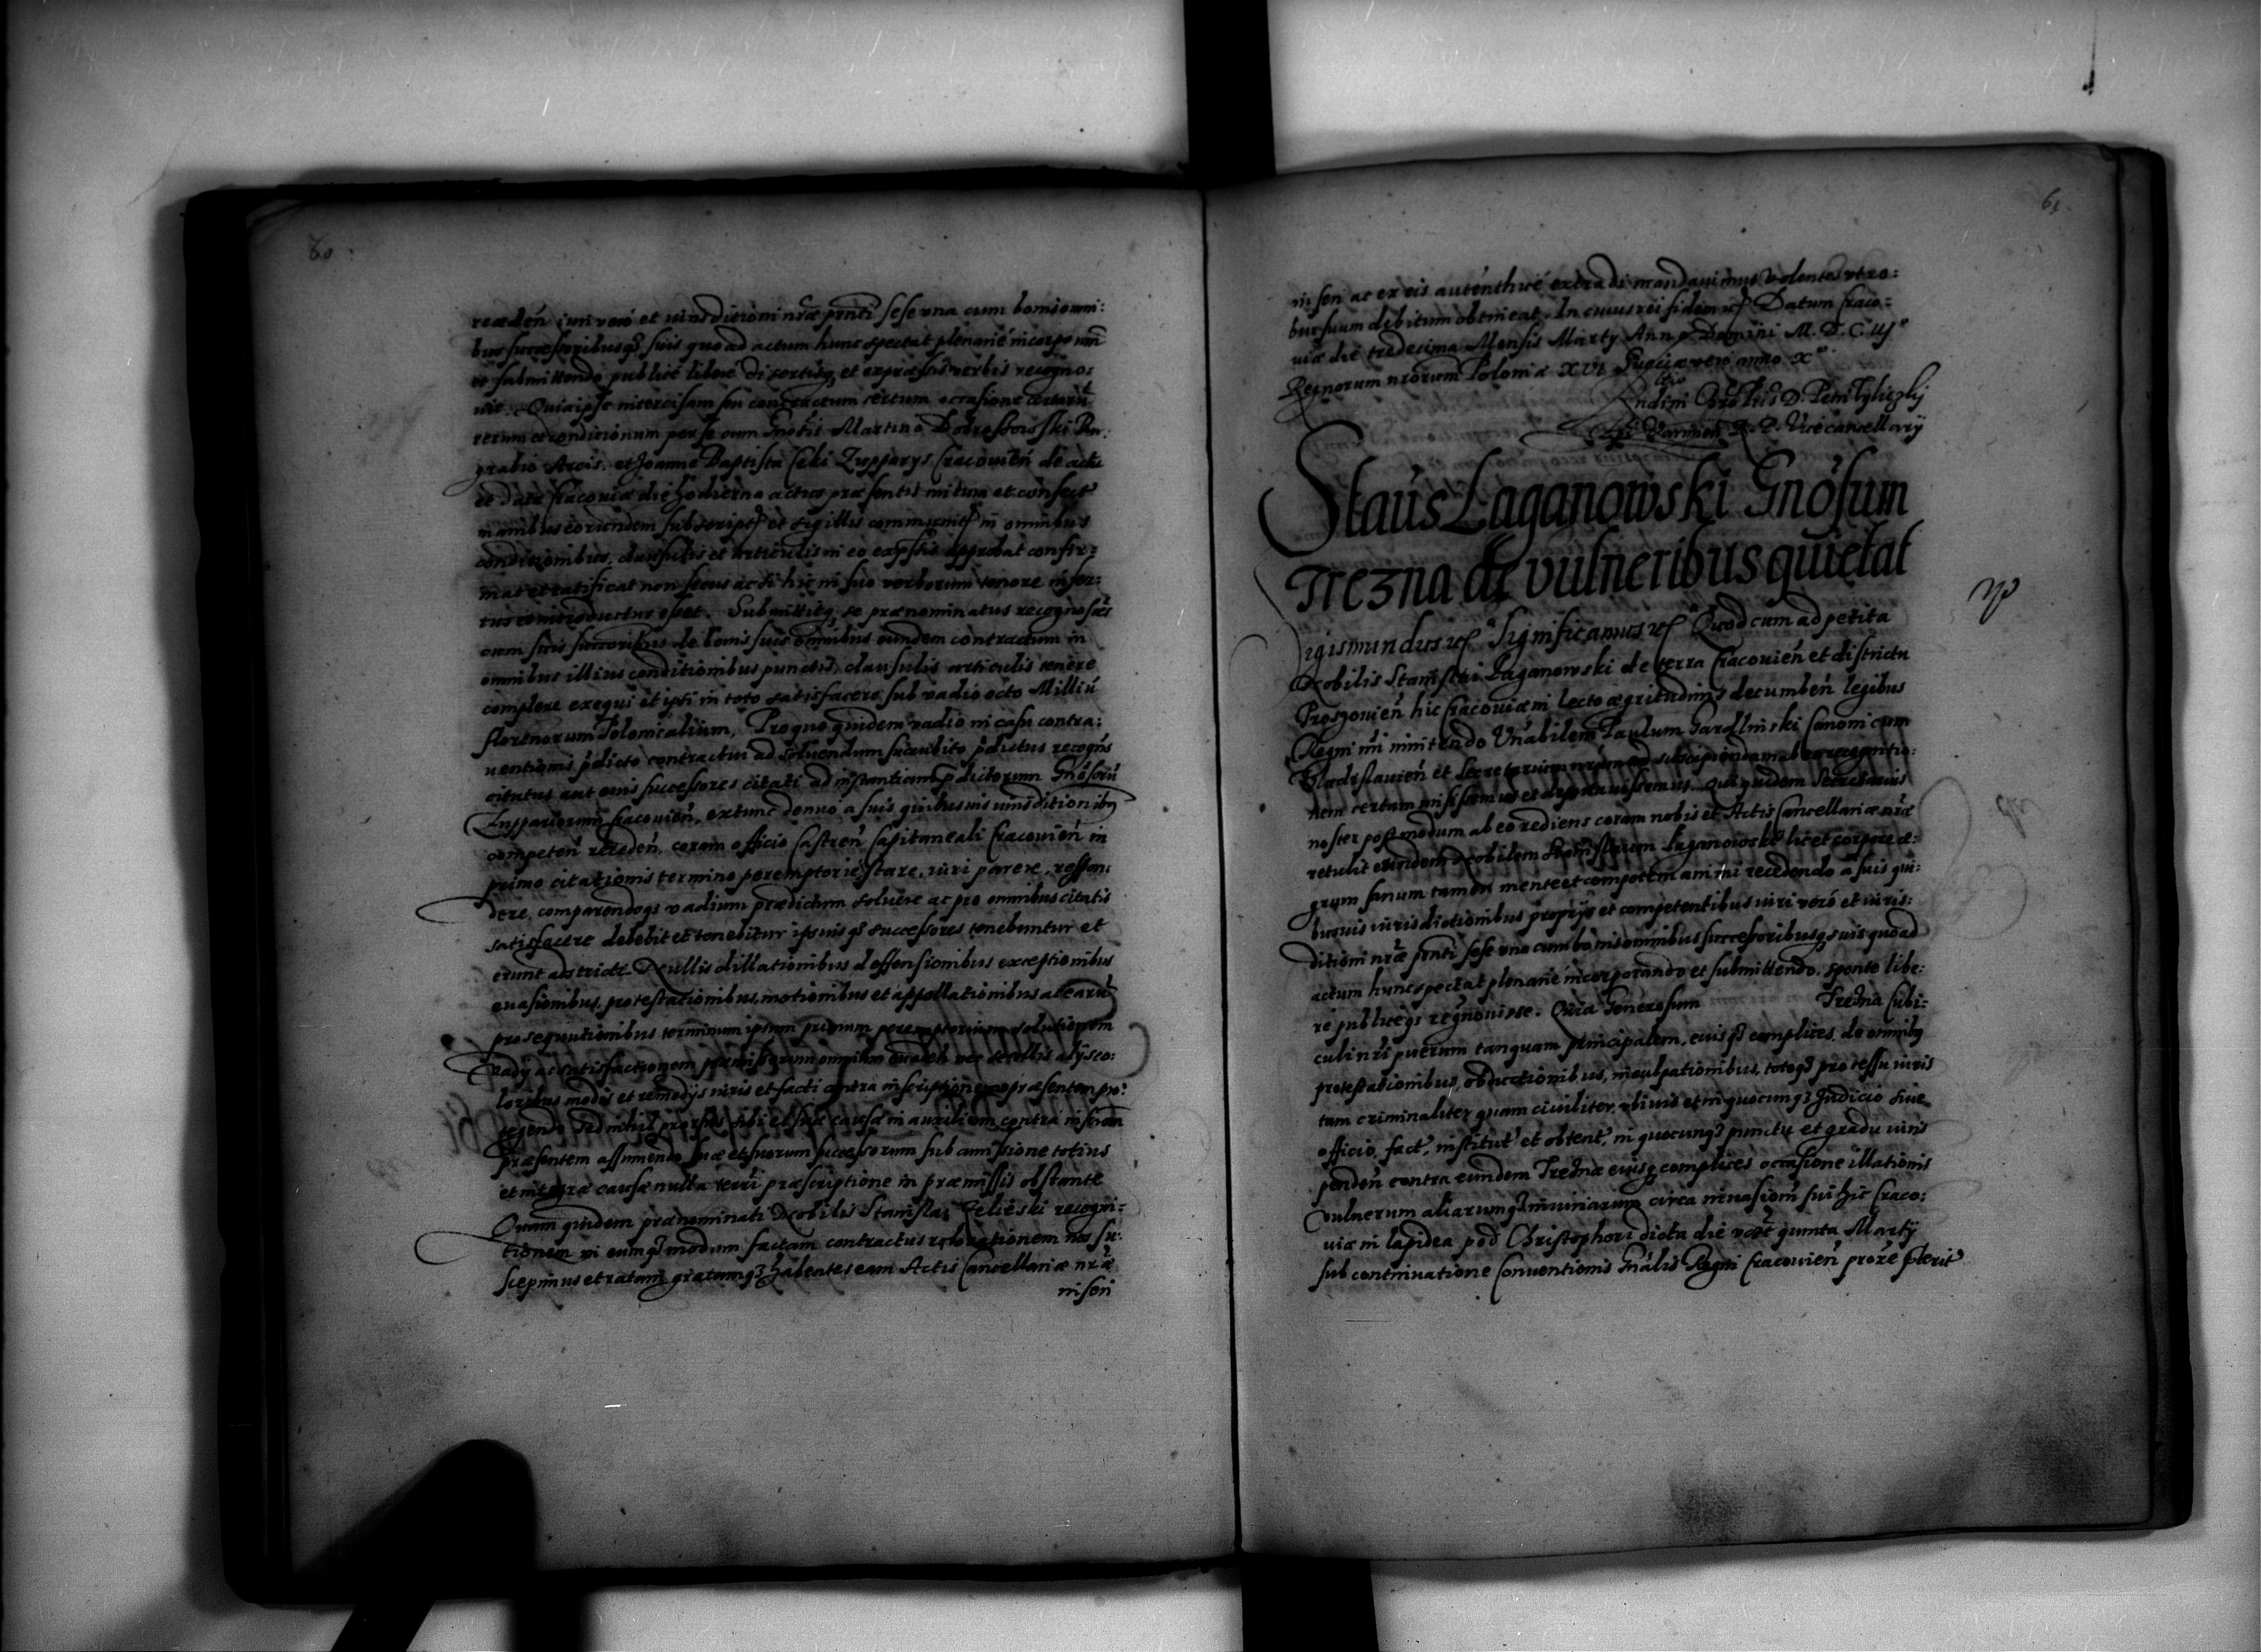 60
receden iuri vero et iurisditioni nrae pnti sese vna cum bonis omni:
bus successoribusq3 suis quoad actum hunc spectat plenarie incorporan
et submittendo publice libere disertisq3 et expressis verbis recogno:
uit. Quia ipse intercisam seu contractum certum occasione certarū
rerum et conditionum per se cum Gnosis Martino Dobrostowski Bur:
grabio Arcis, et Joanne Baptista Ceki Zupparys Cracouien de actu
et data Cracouiae die hodierna actus praesentis initum et confect
manibus eorundem subscript et sigillis communit in omnibus
conditionibus, clausulis et articulis in eo expssis approbat confir:
mat et ratificat non secus ac si hic in suo verborum tenore inser:
tus et introductus esset. Submittitq3 se praenominatus recognoscēs
cum suis succoribus de bonis suis omnibus eundem contractum in
omnibus illius conditionibus punctis, clausulis articulis tenere
complere exequi et ipsi in toto satisfacere sub vadio octo Milliū
florenorum Polonicalium, Pro quo quidem vadio in casu contra:
uentionis pdicto contractui ad soluendum succubito pdictus recogns
citatus aut eius successores citati ad instantiam pdictorum Gnosorū
Zuppariorum Cracouien, extunc denuo a suis quibusuis iurisditionib9
competen receden, coram officio Castren Capitaneali Cracouien in
primo citationis termino peremptorie stare, iuri parere, respon:
dere, comparendoq3 vadium praedictum soluere ac pro omnibus citatis
satisfacere debebit et tenebitur ipsiusq3 successores tenebuntur et
erunt adstricti. Nullis dillationibus deffensionibus exceptionibus
euasionibus, protestationibus, motionibus et appellationibus ac earū
prosequutionibus terminum ipsum primum peremptorium solutionem
vadij ac satisfactionem praemissorum omnium euadendo nec se ullis alijs co:
loribus modis et remedijs iuris et facti contra inscriptionem praesentem pro:
tegendo sed nihil prorsus sibi et suae causae in auxilium contra inscrom
praesentem assumendo suae et suorum successorum sub amissione totius
et integrae causae nulla terri praescriptione in praemissis obstante
Quam quidem praenominati Nobilis Stanislai Zelieski recogni:
tionem in eumq3 modum factam contractus roborationem nos su:
scepimus et ratam gratamq3 habentes eam Actis Cancellariae nrae
inseri
61
inseri ac ex eis autenthice extradi mandauimus volentes vt ro:
bur suum debitum obtineat. In cuius rei fidem etc Datum Craco:
uiae die tredecima Mensis Marty Anno Domini M.D.C.iij°
Regnorum nrorum Poloniae XVI Sueciae vero anno X°
Rndissi Pris D. Petri Tyliczky
Epi Varmien R. P. Vicecancellarij
Staūs Łaganowski Gnosum
Trezna de vulneribus quietat
Sigismundus etc Significamus etc Quod cum ad petita
Nobilis Stanislai Łaganowski de terra Cracouien et districtu
Proszouien hic Cracouiae in lecto aegritudinis decumben legibus
Regni nri nitendo Vnabilem Paulum Gardlinski Canonicum
Vladislauien et Secretarium nrum ad suscipiendam ab eo recognitio:
nem certam misissemus et deputauissemus. Qui quidem Secretarius
noster postmodum ab eo rediens coram nobis et Actis Cancellariae nrae
retulit eundem Nobilem Stanislaum Łaganowski licet corpore ae:
grum sanum tamen mente et compotem animi recedendo a suis qui:
busuis iurisdictionibus proprijs et competentibus iuri vero et iuris:
ditioni nrae pnti sese vna cum bonis omnibus successoribusq3 suis quoad
actum hunc spectat plenarie incorporando et submittendo, sponte libe:
re publiceq3 regnouisse. Quia Generosum Trezna Cubi:
culi nri puerum tanquam principalem, eiusq3 complices, de omnib9
protestationibus, obductionibus, inculpationibus, totoq3 processu iuris
tam criminaliter quam ciuiliter vbiuis et in quocunq3 Judicio siue
officio, fact, institut et obtent, in quocunq3 punctu et gradu iuris
penden contra eundem Trezna eiusq3 complices occasione illationis
vulnerum aliarumq3 iniuriarum circa inuasiom sui hic Craco:
uiae in lapidea pod Christophori dicta die quinta Martij
sub continuatione Conuentionis Gnalis Regni Cracouien proxe pterit